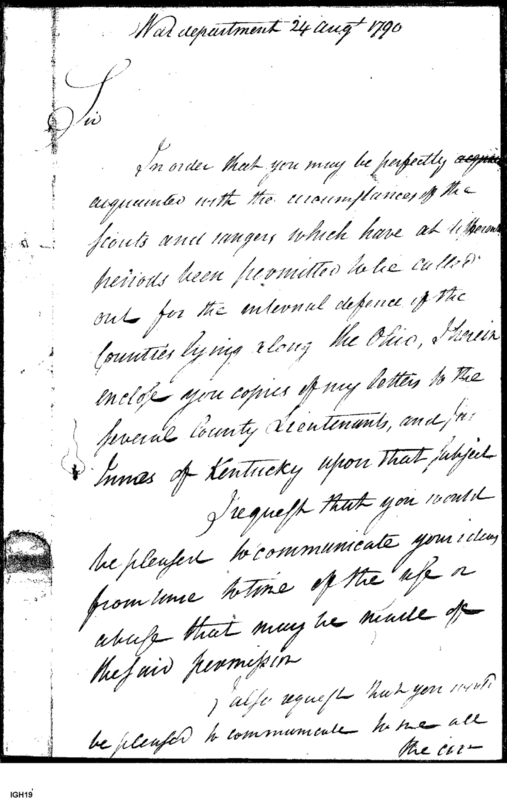 War department 24 Augt 1790
Sir
In order that you may be perfectly
acquainted with the circumstances of the
scouts and rangers which have at different
periods been permitted to be called
out for the internal defence of the
Counties lying along the Ohio, I herein
enclose you copies of my letters to the
several County Lieutenants, and
Innes of Kentucky upon that subject
I request that you would
be pleased to communicate your ideas
from time to time of the use or
abuse that may be made of
the said permission
I also request that you would
be pleased to communicate to me all
the cir
IGH19